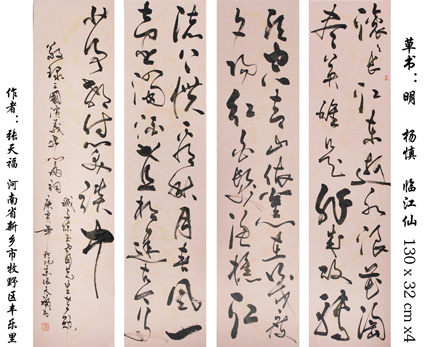 草书：明 杨慎 临江仙 130 x 32 cm x4
滚滚长江东逝水浪花淘
尽英雄是非成败转
头空青山依旧在几度
夕阳红白发渔樵江
渚上惯看秋月春风一
壶浊酒喜相逢古今多
少事都付笑谈中
敬录三国演义开篇词
作者：张天福 河南省新乡市牧野区丰乐里